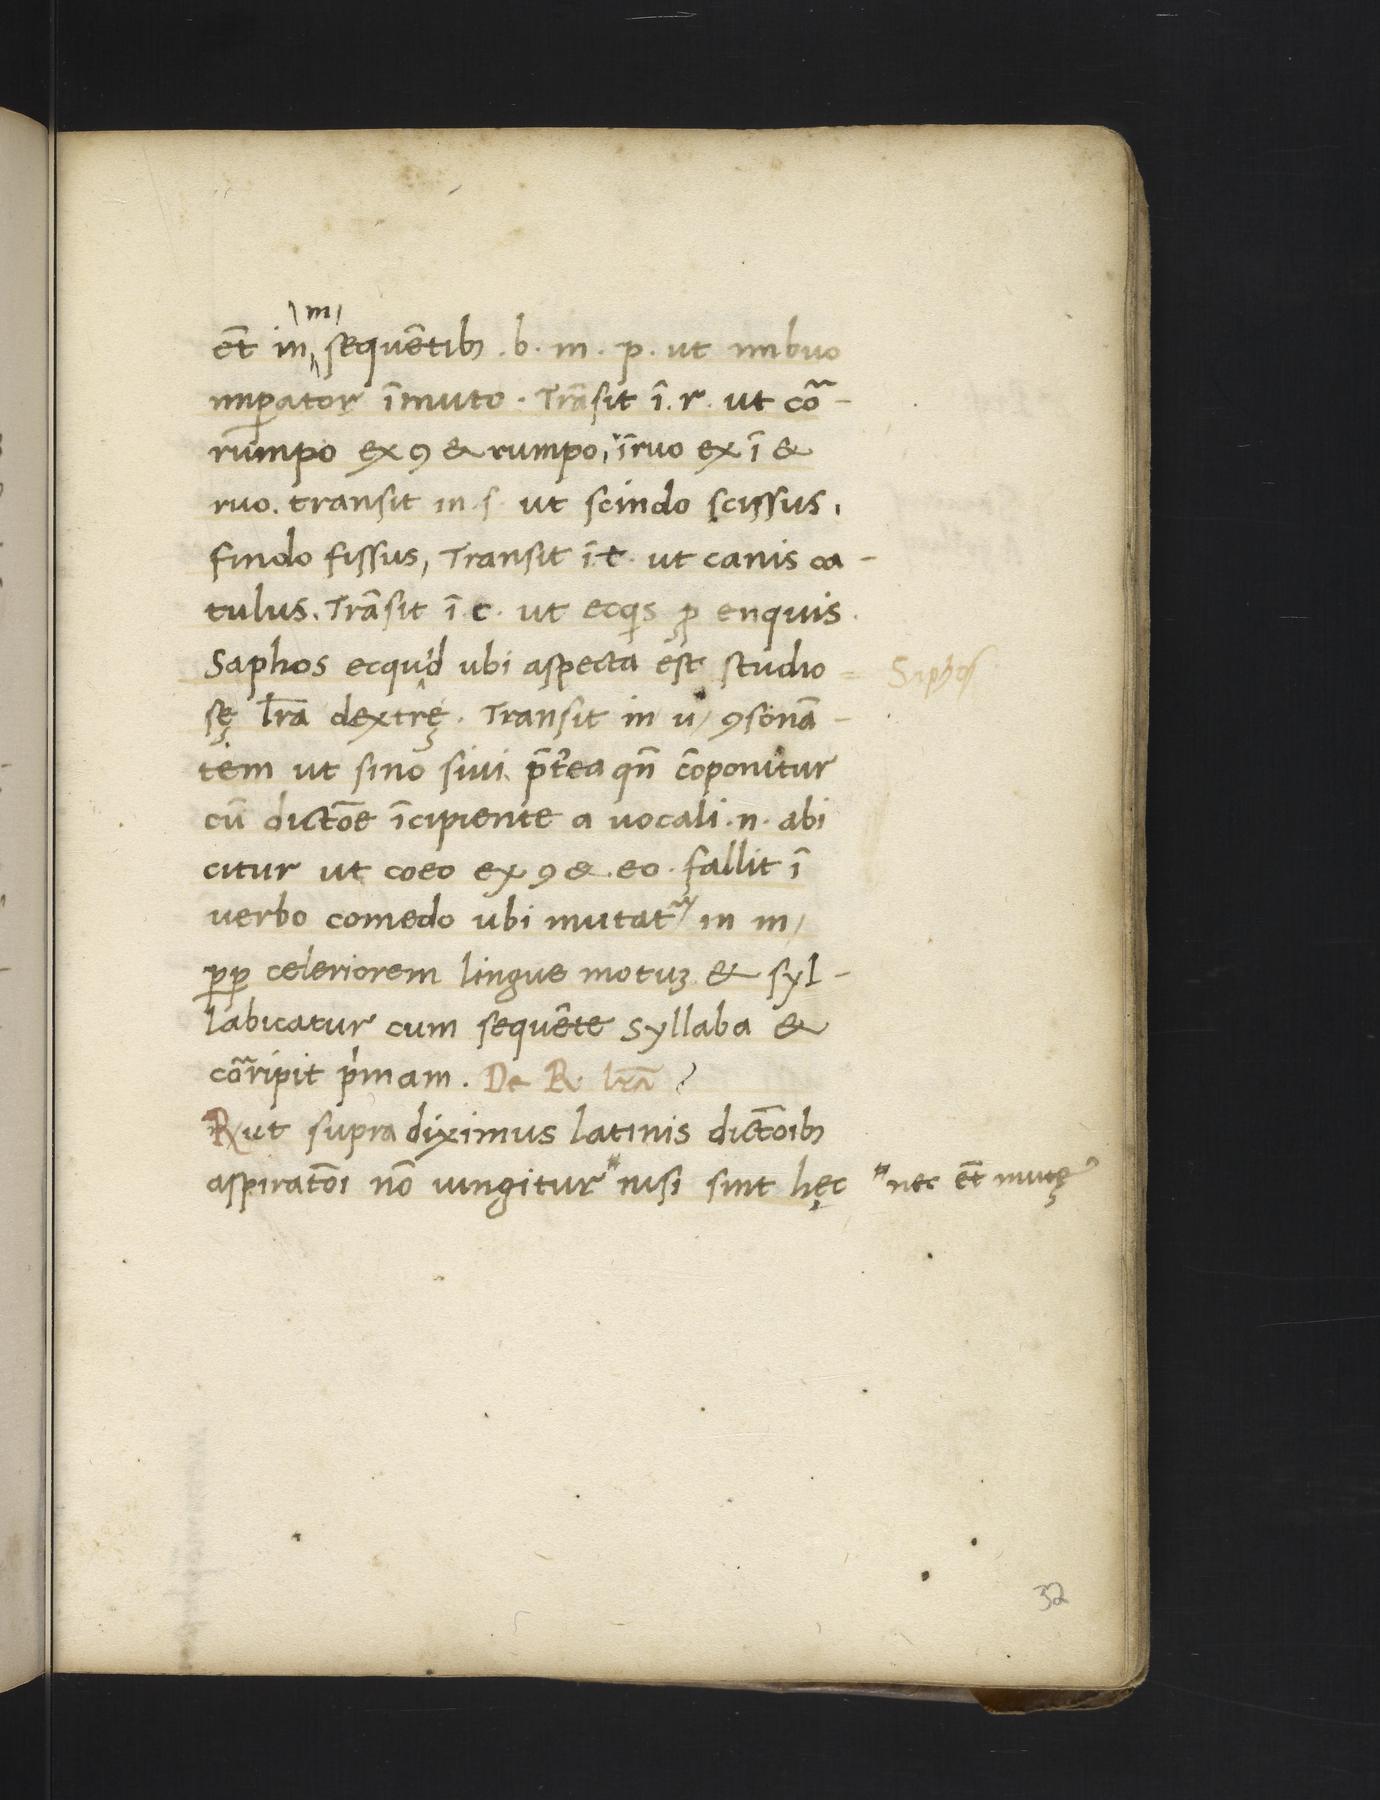 \m/
et̄ in, sequẽtibꝫ . b . m . p . ut imbuo
imꝑator ĩmuto . Trãsit ĩ . r . ut cõr-
rumpo ex ꝯ & rumpo, ĩruo ex ĩ &
ruo. transit in . s . ut scindo scissus,
findo fissus, Transit ĩ . t . ut canis ca-
tulus. Trãsit ĩ . c . ut ecqis ꝓ enquis .
Saphos ecquid ubi aspecta est studio= Saphos
sę lr̄a dextrę . Transit in u / ꝯsonã-
tem ut sino siui. p̄t'ea qñ cõponitur
cũ dictõe ĩcipiente a uocali . n . abi
citur ut coeo ex ꝯ & . eo . fallit ĩ
uerbo comedo ubi mutatr in m /
ꝓꝑ celeriorem lingue motuꝫ & syl-
labicatur cum sequẽte syllaba &
corripit p'mam . De R lr̄a
R ut supra diximus latinis dictõibꝫ
aspiratõi nõ iungitur " nisi sint hęc " nec et̄ mutę
32